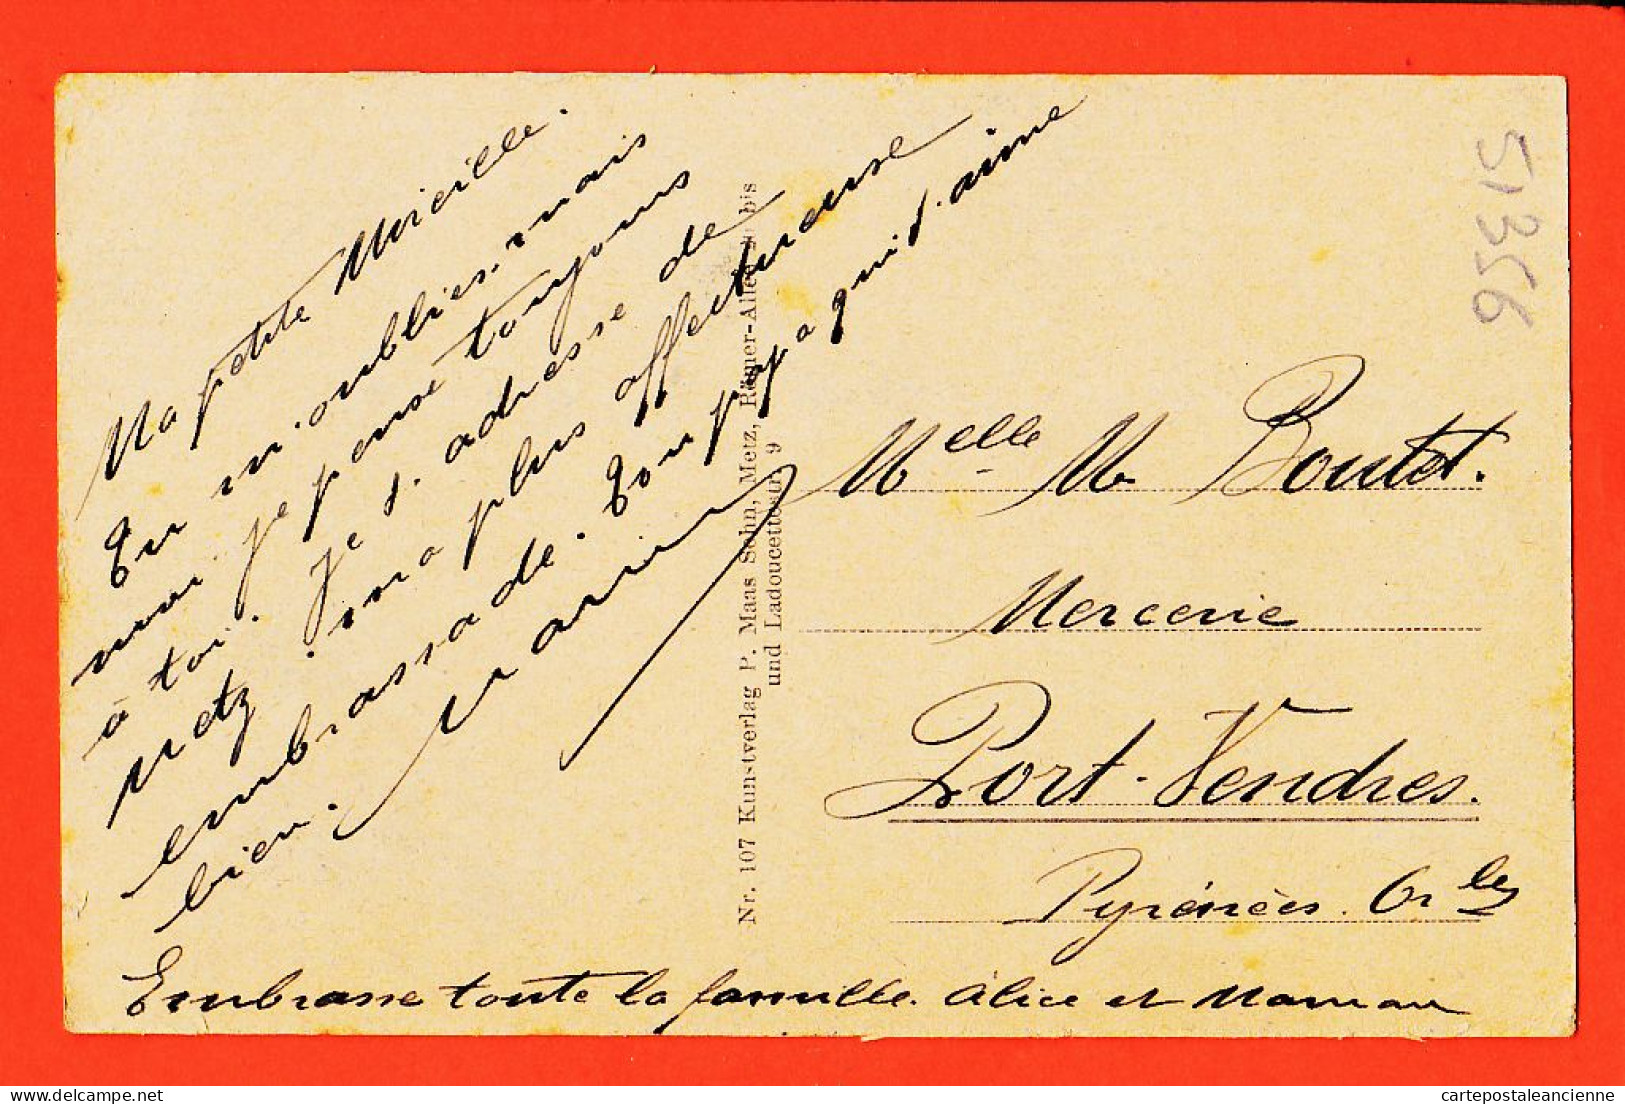 Ma petite Mireille.
Tu m'oublies. mais
moi je pense toujours
à toi. Je t'adresse de
Metz. ma plus affectueuse
embrassade. Ton papa qui t'aime
bien.
Embrasse toute la famille. Alice et Maman
Nr. 107 Kunstverlag P. Maas Sohn, Metz, Römer-Allee bis
und Ladoucette 9
Melle M. Boutet.
Mercerie
Port-Vendres.
Pyrénées. Orles
51356
cartepostaleancienne